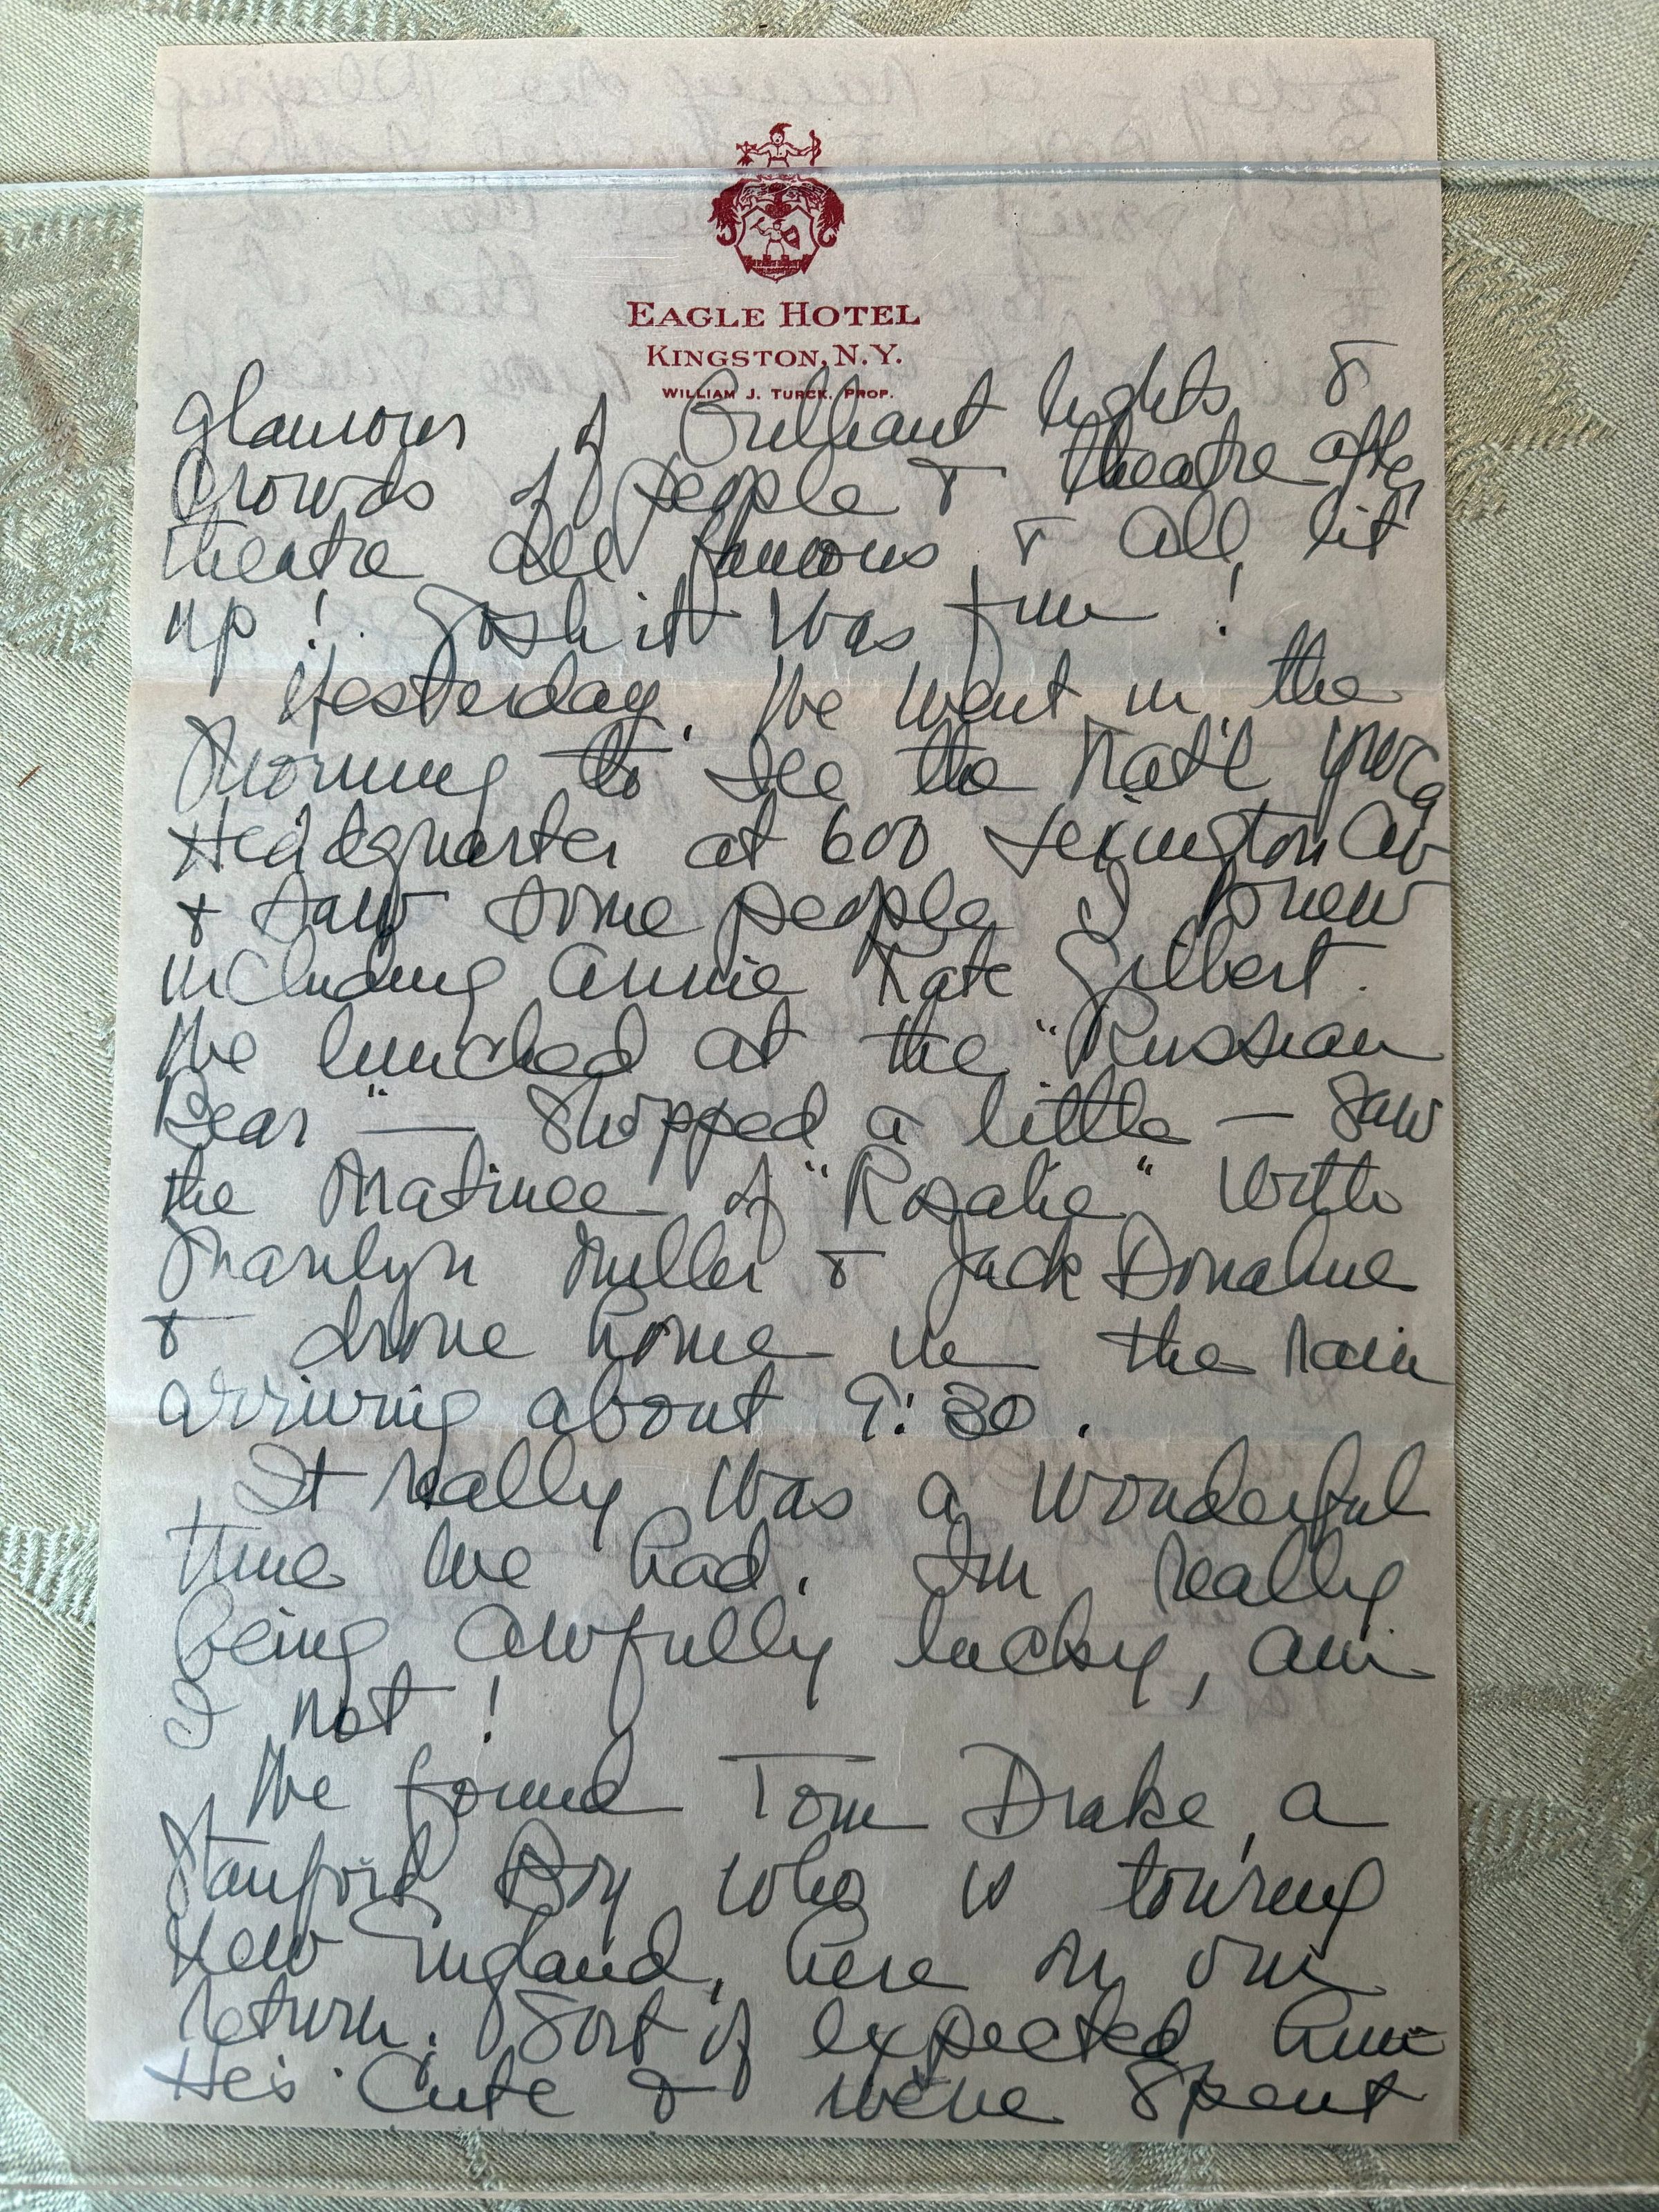 EAGLE HOTEL
KINGSTON, N.Y.
WILLIAM J. TURCK, PROP.
glamour of Brilliant lights &
Crowds of people & theatre after
theatre all famous & all lit
up! Gosh it was fun!
Yesterday, we went in the
morning to see the Nat'l YWCA
Headquarter at 600 Lexington Av
& saw some people I knew
including Annie Kate Gilbert.
We lunched at the "Russian
Bear" — shopped a little — saw
the Matinee of "Rosalie" with
Marilyn Miller & Jack Donahue
& drove home in the rain
arriving about 9:30.
It really was a wonderful
time we had. I'm really
being awfully lucky, am
I not!
We found Tom Drake, a
Stanford Boy who is touring
New England, here on our
return. Sort of expected him
He's cute & we've spent